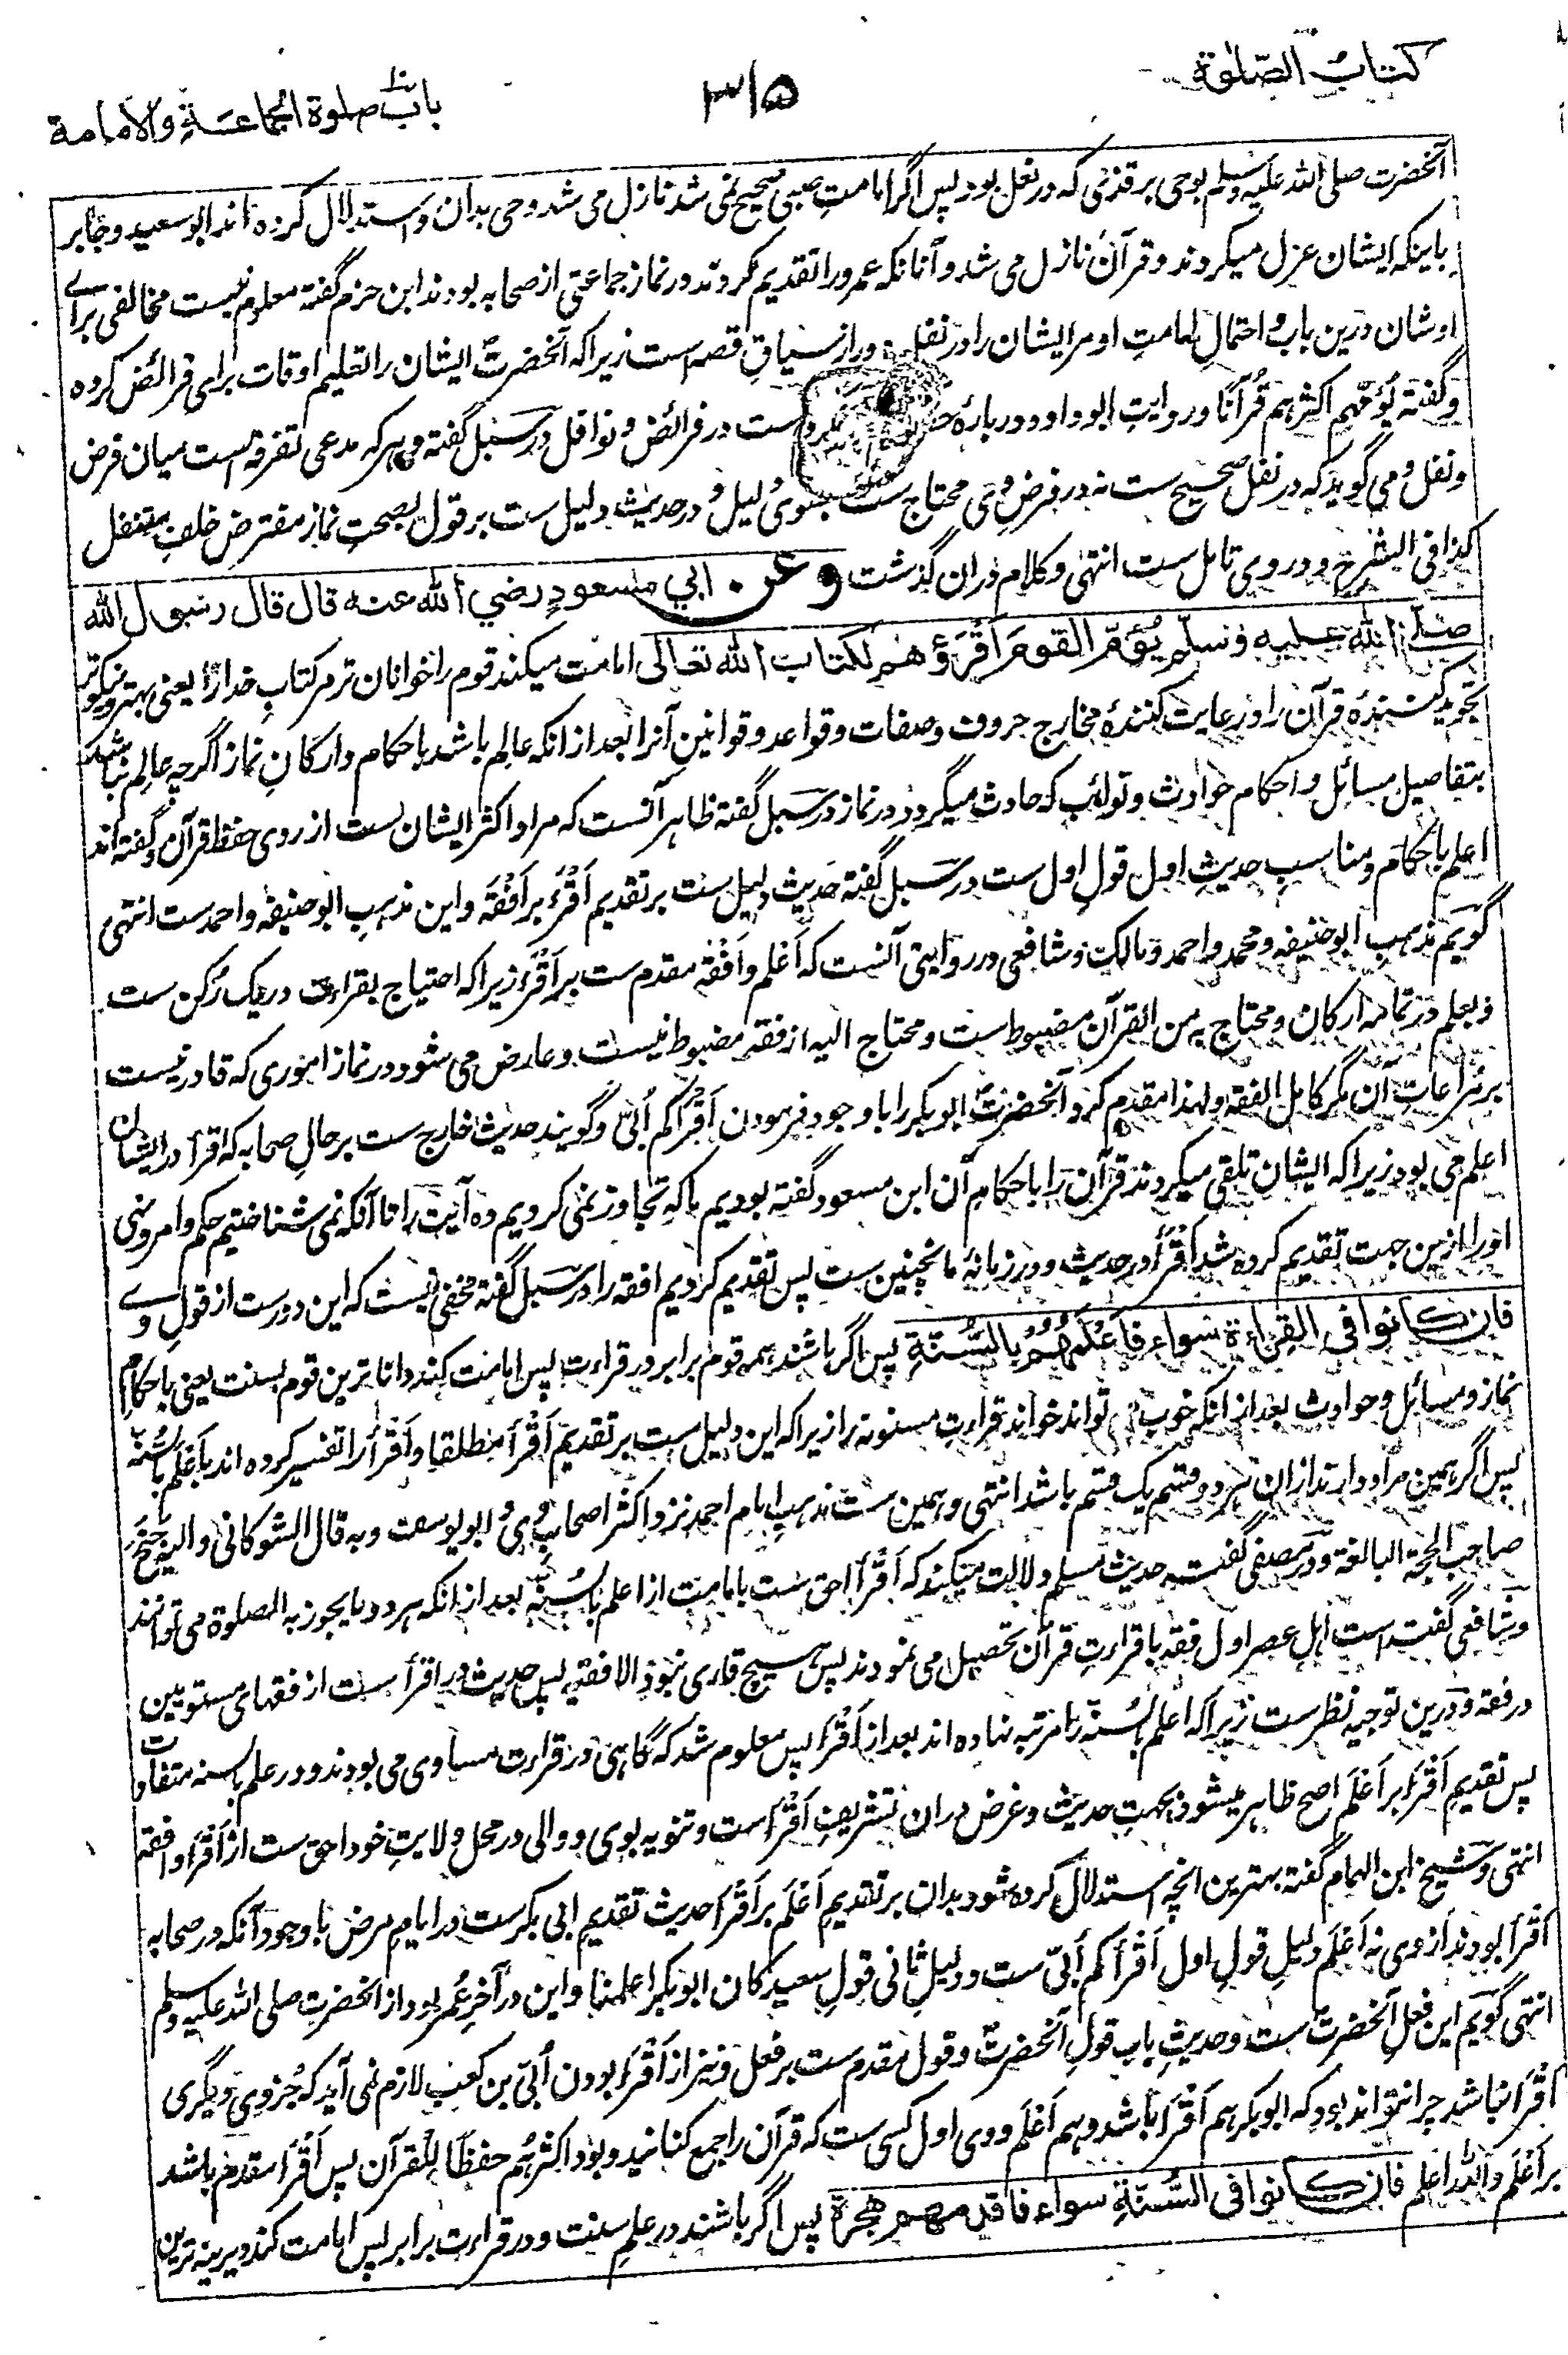 کتاب الصلوة
۳۱۵
باب صلوة الجماعة والامامة
آنحضرت صلی الله علیه وسلم بوحی بر قذری که در نعل بود پس اگر امامتِ صبی صحیح نمی شد نازل می شد وحی بدان و استدلال کرده اند ابو سعید و جابر
باینکه ایشان عزل میکردند و قرآن نازل می شد و آنانکه عمرو را تقدیم کردند در نماز جماعتی از صحابه بودند ابن حزم گفته معلوم نیست مخالفی برای
اوشان درین باب و احتمالِ امامتِ او مر ایشان را در نفل دور از سیاقِ قصه است زیرا که آنحضرتؐ ایشان را تعلیم اوقات برای فرائض کرده
و گفته یؤمّهم اکثرهم قُرآنًا و روایتِ ابو داود در بارهٔ ست در فرائض و نوافل در سبل گفته و هر که مدعی تفرقه است میان فرض
و نفل و می گوید که در نفل صحیح ست نه در فرض وی محتاج ست بسوی دلیل و در حدیث دلیل ست بر قول بصحتِ نماز مفترض خلفِ متنفل
کذا فی الشرح و در وی تامل ست انتهی و کلام دران گذشت وعن ابی مسعود رضی الله عنه قال قال رسول الله
صلی الله علیه وسلم یُؤمّ القومَ اَقْرَؤُهم لکتاب الله تعالی امامت میکند قوم را خوانان تر مر کتابِ خدا را یعنی بهتر و نیکوتر
تجوید کنندهٔ قرآن را و رعایت کنندهٔ مخارج حروف و صفات و قواعد و قوانینِ آنرا بعد از انکه عالم باشد باحکام و ارکانِ نماز اگرچه عالم نباشد
بتفاصیل مسائل و احکام حوادث و نوائب که حادث میگردد در نماز در سبل گفته ظاهر آنست که مراد اکثر ایشان ست از روی حفظ قرآن و گفته اند
اعلم باحکام و مناسبِ حدیثِ اول قولِ اول ست در سبل گفته حدیث دلیل ست بر تقدیم اَقْرَأ بر اَفْقَه و این مذهبِ ابو حنیفه و احمد ست انتهی
گویم مذهبِ ابو حنیفه و محمد و احمد و مالک و شافعی در روایتی آنست که اَعْلم و اَفْقَه مقدم ست بر اَقْرَأ زیرا که احتیاج بقراءت در یک رکن ست
و بعلم در تمامه ارکان و محتاج به من القرآن مضبوط است و محتاج الیه از فقه مضبوط نیست و عارض می شود در نماز اموری که قادر نیست
بر مُراعاتِ ان مگر کامل الفقه و لهذا مقدم کرد آنحضرتؐ ابو بکر را با وجود فرمودن اَقْرَأکم اُبیّ و گویند حدیث خارج ست بر حالِ صحابه که اقرأ در ایشان
اعلم می بود زیرا که ایشان تلقی میکردند قرآن را باحکامِ آن ابن مسعود گفته بودیم ما که تجاوز نمی کردیم ده آیت را تا آنکه نمی شناختیم حکم و امر و نهی
او را ازین جهت تقدیم کرده شد اَقْرَأ در حدیث و در زمانهٔ ما نچنین ست پس تقدیم کردیم افقه را در سبل گفته مخفی نیست که این دورست از قولِ وی
فان کانوا فی القراءة سواء فاَعْلَمُهُمْ بالسُّنَّةِ پس اگر باشند همه قوم برابر در قراءت پس امامت کند داناترین قوم بسنت یعنی باحکام
نماز و مسائل و حوادث بعد از انکه خوب تواند خواند قراءتِ مسنونه را زیرا که این دلیل ست بر تقدیم اَقْرَأ مطلقا و اَقْرَأ را تفسیر کرده اند باَعْلَم بالسُّنّة
پس اگر همین مراد دارند ازان هر دو قسم یک قسم باشد انتهی و همین ست مذهبِ امام احمد نزد اکثر اصحاب وی و ابو یوسف و به قال الشوکانی و الیه جنح
صاحب الحجة البالغة و در مصفی گفته حدیث مسلم دلالت میکند که اَقْرَأ احق ست بامامت از اعلم بالسُّنّة بعد از انکه هر دو ما یجوز به الصلوة می توانند
و شافعی گفته است اهلِ عصرِ اول فقه با قراءتِ قرآن تحصیل می نمودند پس هیچ قاری نبود الا فقیه پس حدیث در اقرأ ست از فقهای مستویین
در فقه و درین توجیه نظرست زیرا که اعلم بالسُنّة را مرتبه نهاده اند بعد از اَقْرَأ پس معلوم شد که گاهی در قراءت مساوی می بودند و در علم بالسنه متفاوت
پس تقدیمِ اَقْرَأ بر اَعْلَم اصح ظاهر میشود بجهتِ حدیث و غرض دران تشریفِ اَقْرَأ ست و تنویه بوی و والی در محل ولایتِ خود احق ست از اَقْرَأ و افقه
انتهی و شیخ ابن الهمام گفته بهترین انچه استدلال کرده شود بدان بر تقدیمِ اَعْلَم بر اَقْرَأ حدیث تقدیمِ ابی بکرست در ایامِ مرض با وجود آنکه در صحابه
اَقْرَأ بودند از وی نه اَعْلَم دلیلِ قولِ اول اَقْرَأکم اُبیّ ست و دلیلِ ثانی قولِ سعید کان ابو بکر اعلمنا و این در آخرِ عُمر بود از انحضرت صلی الله علیه وسلم
انتهی گویم این فعلِ آنحضرتؐ ست و حدیثِ باب قولِ آنحضرتؐ و قول مقدم ست بر فعل و نیز از اَقْرَأ بودن اُبیّ بن کعب لازم نمی آید که جُز وی دیگری
اَقْرَأ نباشد چرا نتواند بود که ابو بکر هم اَقْرَأ باشد و هم اَعْلَم و وی اول کسی ست که قرآن را جمع کنانید و بود اکثرهُم حفظًا للقرآن پس اَقْرَأ مقدم باشد
بر اَعْلَم والله اعلم فان کانوا فی السُّنّةِ سواء فاقدمهم هجرة پس اگر باشند در علمِ سنت و در قراءت برابر پس امامت کند دیرینه ترین